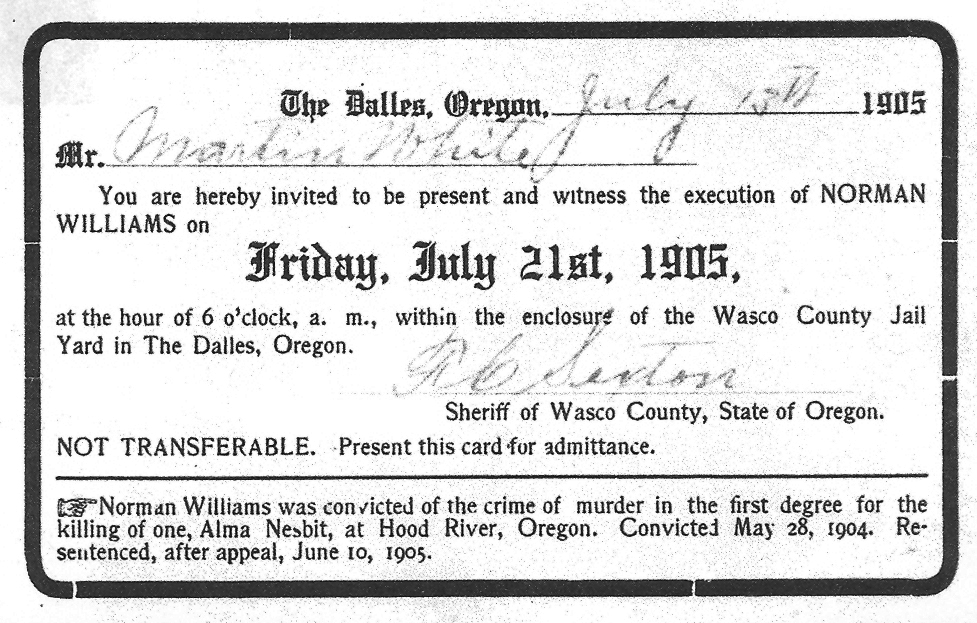 The Dalles, Oregon, July 15th 1905
Mr. Martin White
You are hereby invited to be present and witness the execution of NORMAN
WILLIAMS on
Friday, July 21st, 1905,
at the hour of 6 o'clock, a. m., within the enclosure of the Wasco County Jail
Yard in The Dalles, Oregon.
F C Sexton
Sheriff of Wasco County, State of Oregon.
NOT TRANSFERABLE. Present this card for admittance.
☞Norman Williams was convicted of the crime of murder in the first degree for the
killing of one, Alma Nesbit, at Hood River, Oregon. Convicted May 28, 1904. Re-
sentenced, after appeal, June 10, 1905.